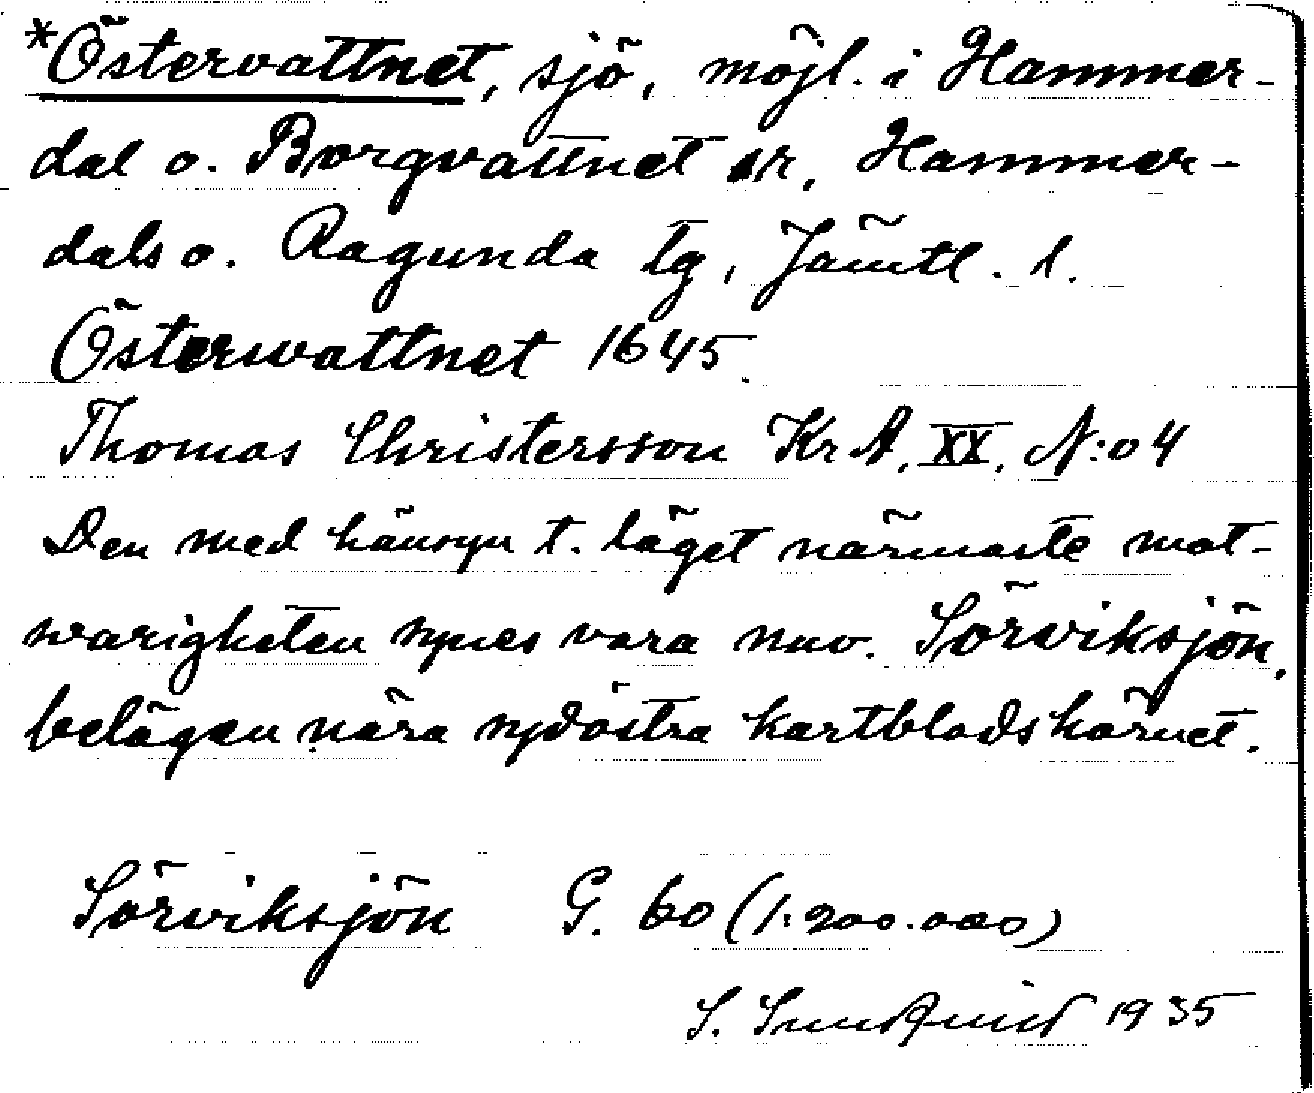 *Östervattnet, sjö, möjl. i Hammer-
dal o. Borgvattnet sr, Hammer-
dals o. Ragunda tg, Jämtl. l.
Österwattnet 1645.
Thomas Christersson KrA, XX, N:o 4
Den med hänsyn t. läget närmaste mot-
svarigheten synes vara nuv. Sörviksjön,
belägen nära sydöstra kartbladshörnet.
Sörviksjön G. 60 (1:200.000)
S. Sundquist 1935